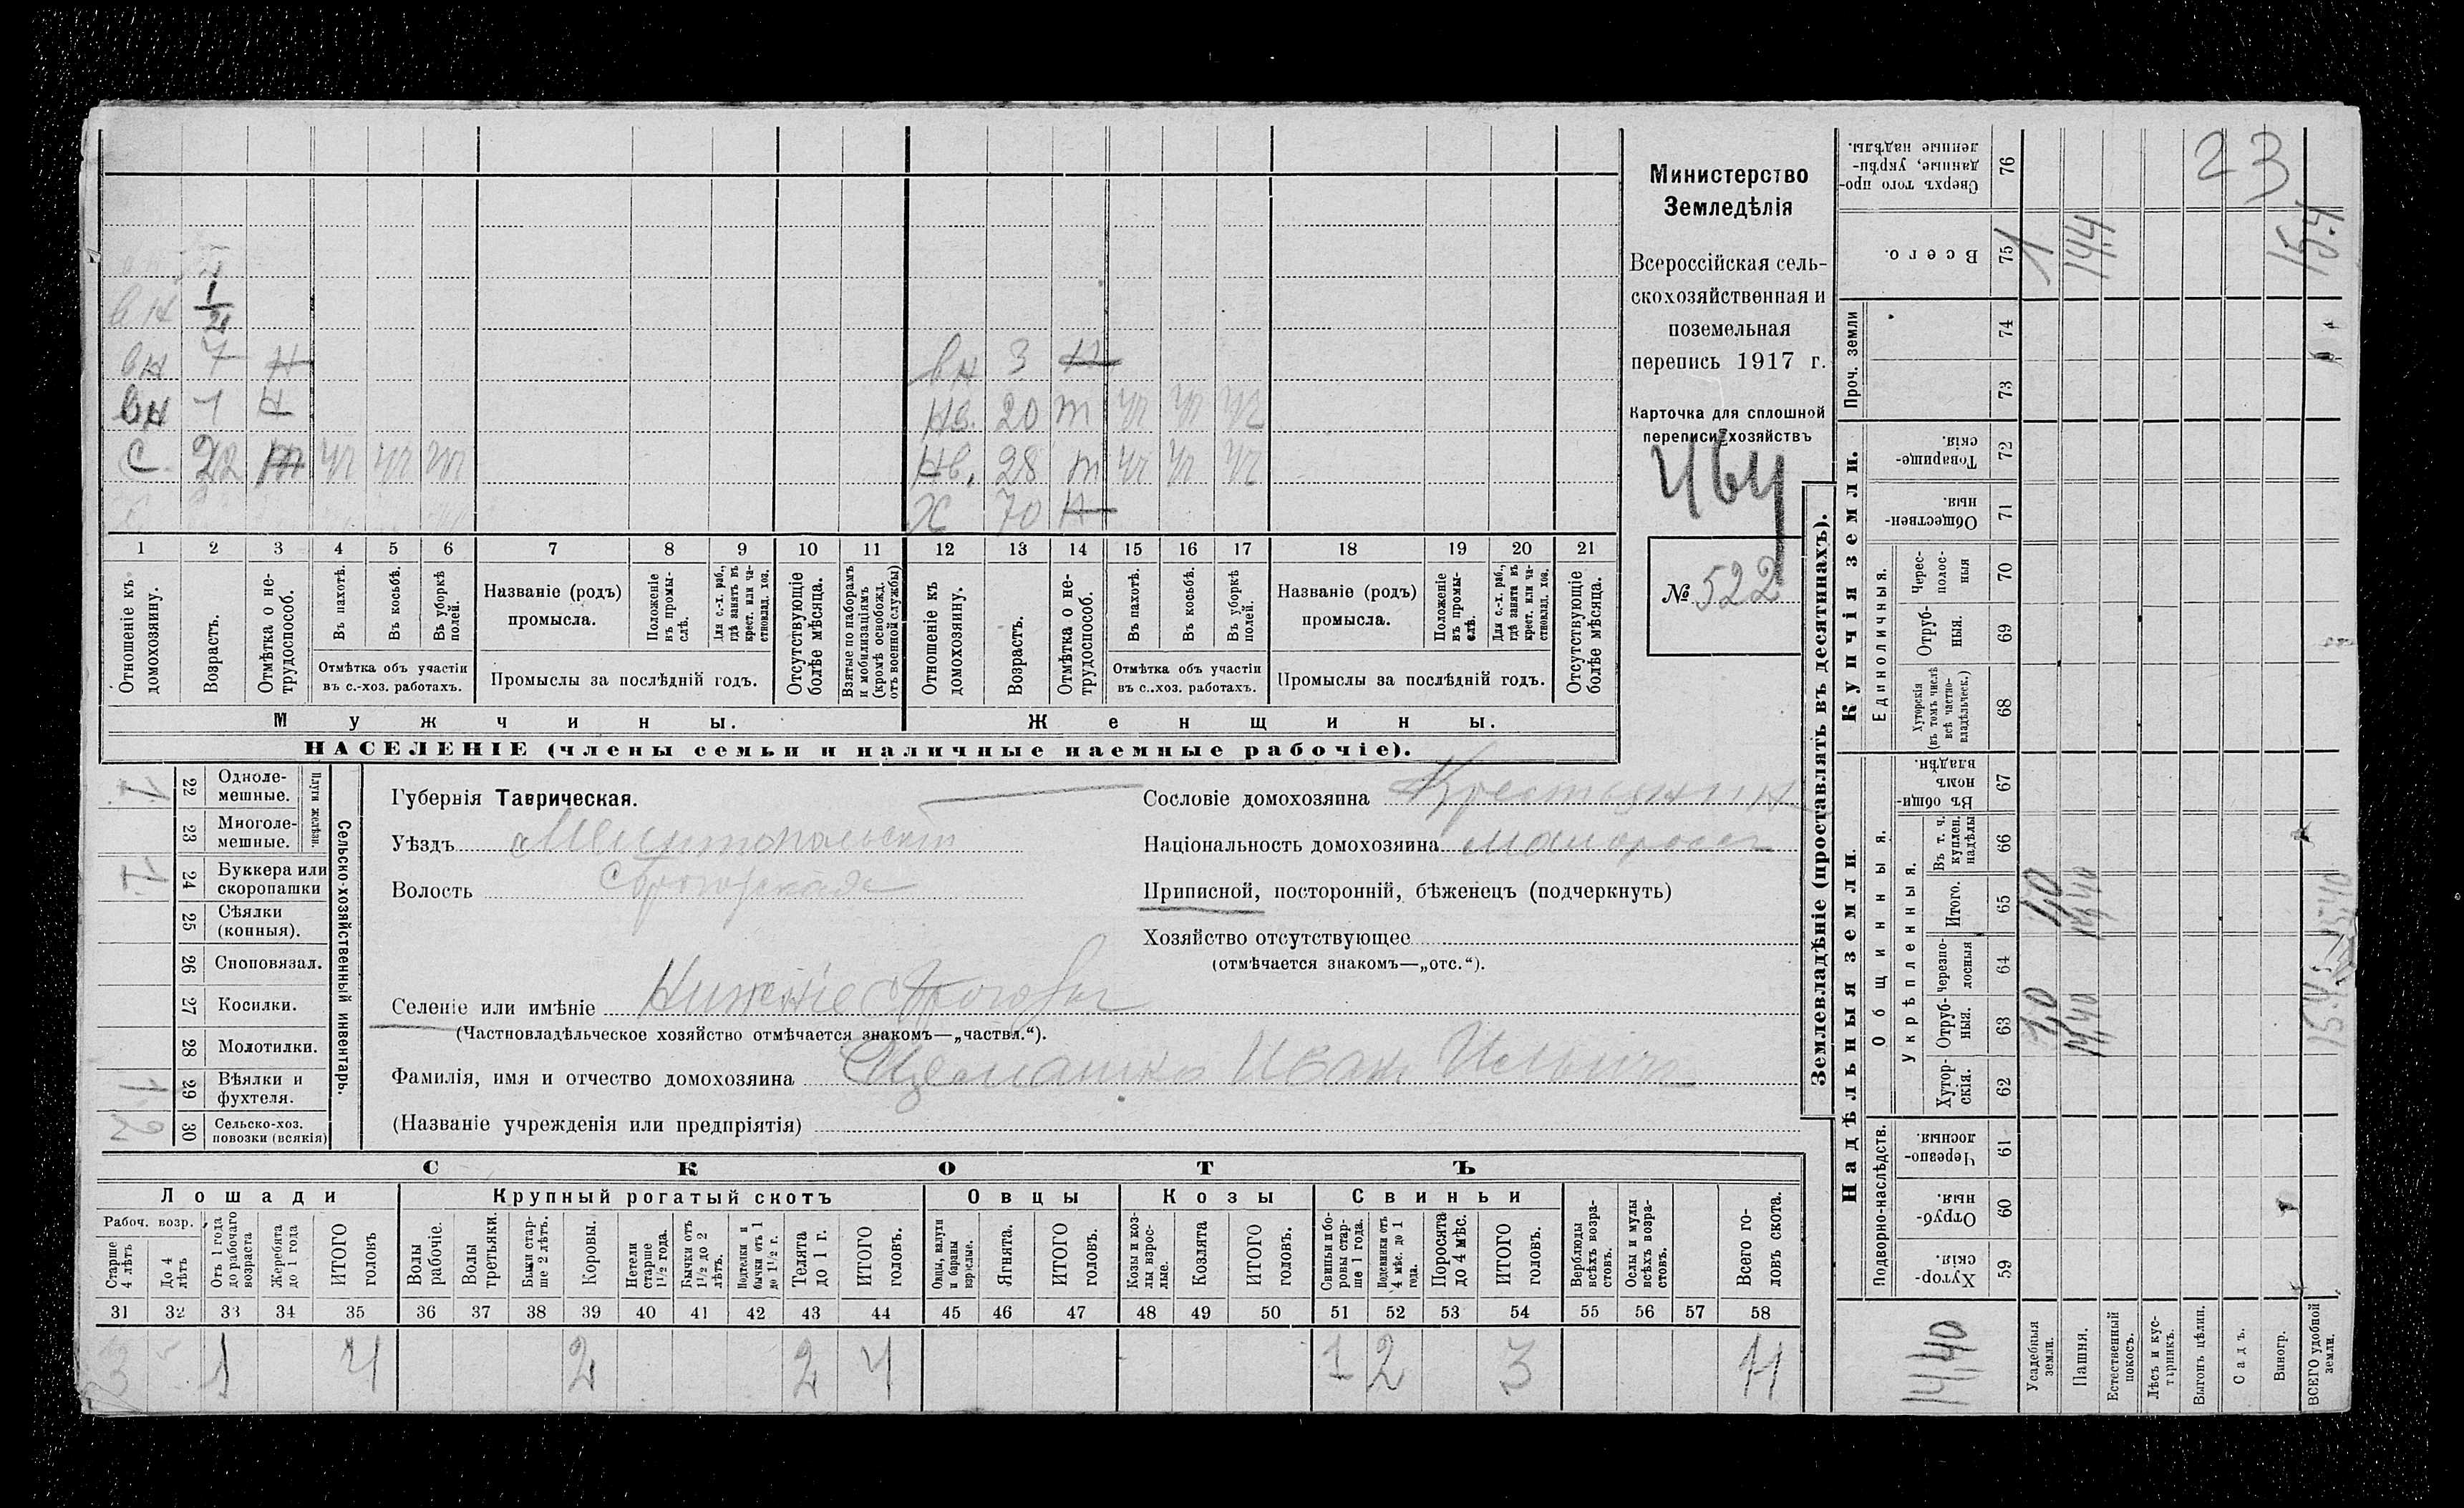 вн 1/2
вн 7 н
вн 3 н
вн 1 н
нв. 20 т уч уч уч
с. 22 т уч уч уч
нв. 28 т уч уч уч
х 70 н
1 2 3 4 5 6 7 8 9 10 11 12 13 14 15 16 17 18 19 20 21
Отношеніе къ домохозяину.
Возрастъ.
Отмѣтка о не-трудоспособ.
Въ пахотѣ.
Въ косьбѣ.
Въ уборкѣ полей.
Отмѣтка объ участіи въ с.-хоз. работахъ.
Названіе (родъ) промысла.
Положеніе въ промы-слѣ.
Для с.-х. раб., гдѣ занятъ въ крест. или ча-стновлад. хоз.
Промыслы за послѣдній годъ.
Отсутствующіе болѣе мѣсяца.
Взятые по наборамъ и мобилизаціямъ (кромѣ освобожд. отъ военной службы)
Отношеніе къ домохозяину.
Возрастъ.
Отмѣтка о не-трудоспособ.
Въ пахотѣ.
Въ косьбѣ.
Въ уборкѣ полей.
Отмѣтка объ участіи въ с.-хоз. работахъ.
Названіе (родъ) промысла.
Положеніе въ промы-слѣ.
Для с.-х. раб., гдѣ заняти въ крест. или ча-стновлад. хоз.
Промыслы за послѣдній годъ.
Отсутствующіе болѣе мѣсяца.
Мужчины.
Женщины.
НАСЕЛЕНІЕ (члены семьи и наличные наемные рабочіе).
Министерство
Земледѣлія
Всероссійская сель-
скохозяйственная и
поземельная
перепись 1917 г.
Карточка для сплошной
переписи хозяйствъ
№ 522
1 22 Одноле-мешные.
23 Многоле-мешные.
Плуги желѣзн.
1 24 Буккера или скоропашки
25 Сѣялки (конныя).
26 Сноповязал.
27 Косилки.
28 Молотилки.
1 29 Вѣялки и фухтеля.
2 30 Сельско-хоз. повозки (всякія)
Сельско-хозяйственный инвентарь.
Губернія Таврическая.
Уѣздъ Мелитопольскій
Волость
Селеніе или имѣніе
(Частновладѣльческое хозяйство отмѣчается знакомъ—„частвл.“).
Фамилія, имя и отчество домохозяина Иван Ильич
(Названіе учрежденія или предпріятія)
Сословіе домохозяина Крестьянин
Національность домохозяина малоросс
Приписной, посторонній, бѣженецъ (подчеркнуть)
Хозяйство отсутствующее
(отмѣчается знакомъ—„отс.“).
СКОТЪ
Лошади
Крупный рогатый скотъ
Овцы
Козы
Свиньи
Рабоч. возр.
Старше 4 лѣтъ
До 4 лѣтъ
Отъ 1 года до рабочаго возраста
Жеребята до 1 года
ИТОГО головъ
Волы рабочіе.
Волы третьяки.
Быки стар-ше 2 лѣтъ.
Коровы.
Нетели старше 1½ года.
Бычки отъ 1½ до 2 лѣтъ.
Подтелки и бычки отъ 1 до 1½ г.
Телята до 1 г.
ИТОГО головъ.
Овцы, валухи и бараны взрослые.
Ягнята.
ИТОГО головъ.
Козы и коз-лы взрос-лые.
Козлята
ИТОГО головъ.
Свиньи и бо-ровы стар-ше 1 года.
Подсвинки отъ 4 мѣс. до 1 года.
Поросята до 4 мѣс.
ИТОГО головъ.
Верблюды всѣхъ возра-стовъ.
Ослы и мулы всѣхъ возра-стовъ.
Всего го-ловъ скота.
31 32 33 34 35 36 37 38 39 40 41 42 43 44 45 46 47 48 49 50 51 52 53 54 55 56 57 58
3 1 4 2 2 4 1 2 3 11
Землевладѣніе (проставлять въ десятинахъ).
Надѣльныя земли.
Купчія земли.
Проч. земли
Подворно-наслѣдств.
Общинныя.
Укрѣпленныя.
Единоличныя.
Хутор-скія. 59
Отруб-ныя. 60
Черезпо-лосныя. 61
Хутор-скія. 62
Отруб-ныя. 63
Черезпо-лосныя 64
Итого. 65
Въ т. ч. куплен. надѣлы 66
Въ общи-номъ владѣн. 67
Хуторскія (въ томъ числѣ всѣ частно-владѣльческ.) 68
Отруб-ныя. 69
Черес-полос-ныя 70
Обществен-ныя. 71
Товарище-скія. 72
73
74
Всего. 75
Сверхъ того про-данные, укрѣп-ленные надѣлы. 76
Усадебныя земли.
Пашня.
Естественный покосъ.
Лѣсъ и кус-тарникъ.
Выгонъ цѣлин.
Садъ.
Виногр.
ВСЕГО удобной земли.
14,40
1,0
14,40
1
144
15.4
23